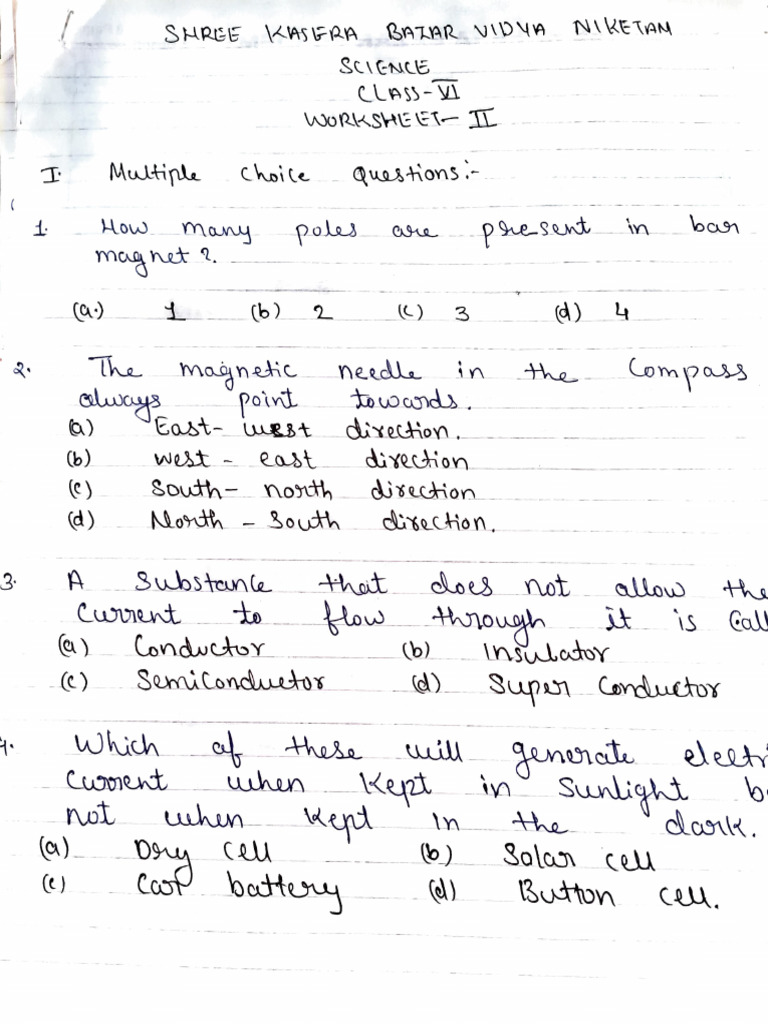 SHREE KASERA BAZAR VIDYA NIKETAN
SCIENCE
CLASS-VI
WORKSHEET- II
I. Multiple Choice Questions:-
1. How many poles are present in bar
magnet?.
(a.) 1 (b) 2 (c) 3 (d) 4
2. The magnetic needle in the Compass
always point towards.
(a) East- west direction.
(b) west - east direction
(c) South- north direction
(d) North - South direction.
3. A Substance that does not allow the
Current to flow through it is Call
(a) Conductor (b) Insulator
(c) SemiConductor (d) Super Conductor
4. Which of these will generate electri
Current when Kept in Sunlight b
not when kept in the dark.
(a) Dry cell (b) Solar cell
(c) Car battery (d) Button cell.